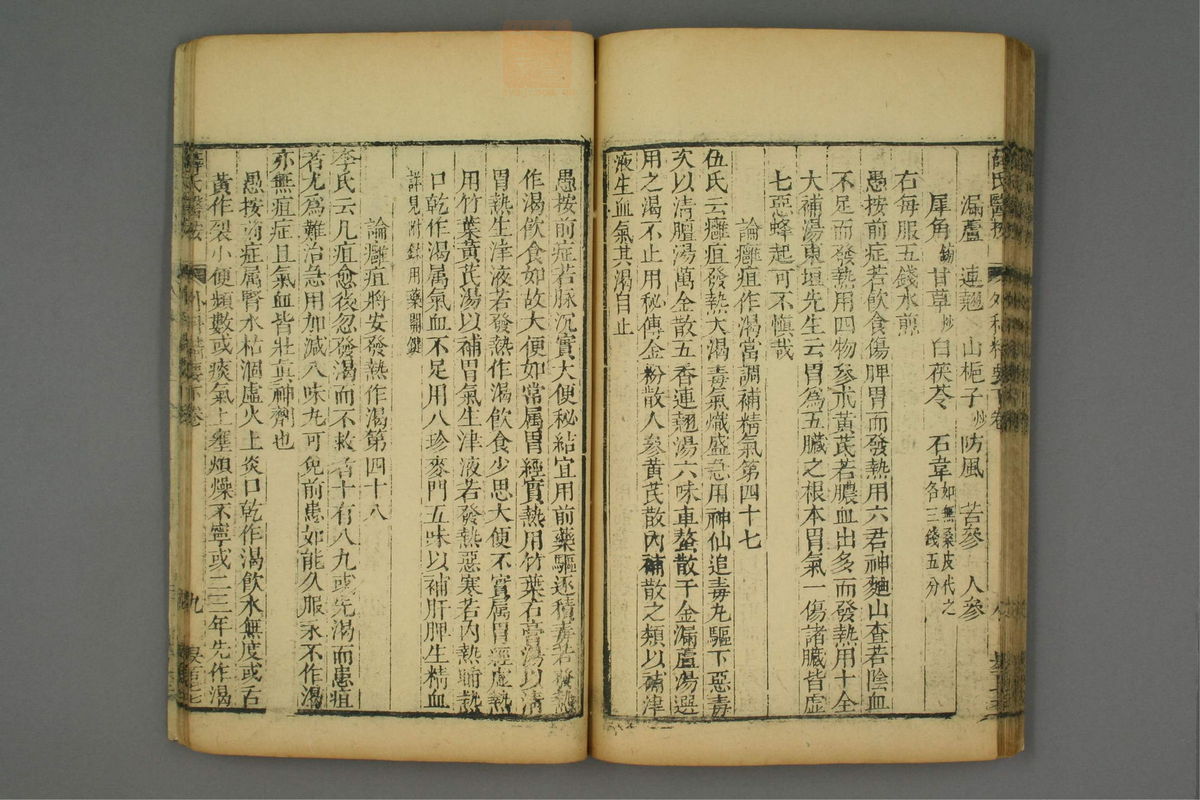 薛氏醫按 外科精要下卷 八
漏蘆 連翹 山梔子炒 防風 苦參 人參
犀角鎊 甘草炒 白茯苓 石韋如無桑皮代之各三錢五分
右每服五錢水煎
愚按前症若飲食傷脾胃而發熱用六君神麯山查若陰血
不足而發熱用四物參朮黃芪若膿血出多而發熱用十全
大補湯東垣先生云胃爲五臟之根本胃氣一傷諸臟皆虛
七惡蜂起可不愼哉
論癰疽作渴當調補精氣第四十七
伍氏云癰疽發熱大渴毒氣熾盛急用神仙追毒丸驅下惡毒
次以清膻湯萬金散五香連翹湯六味車螯散千金漏蘆湯選
用之渴不止用秘傳金粉散人參黃芪散內補散之類以補津
液生血氣其渴自止
愚按前症若脉沉實大便秘結宜用前藥驅逐積毒若發熱
作渴飲食如故大便如常属胃經實熱用竹葉石膏湯以清
胃熱生津液若發熱作渴飲食少思大便不實属胃經虛熱
用竹葉黃芪湯以補胃氣生津液若發熱惡寒若內熱晡熱
口乾作渴属氣血不足用八珍麥門五味以補肝脾生精血
詳見附錄用藥關鍵
論癰疽將安發熱作渴第四十八
李氏云凡疽愈後忽發渴而不救者十有八九或先渴而患疽
者尤爲難治急用加減八味丸可免前患如能久服永不作渴
亦無疽症且氣血皆壯眞神劑也
愚按前症属腎水枯涸虛火上炎口乾作渴飲水無度或舌
黃作裂小便頻數或痰氣上壅煩燥不寧或二三年先作渴
薛氏醫按 外科精要下卷 九